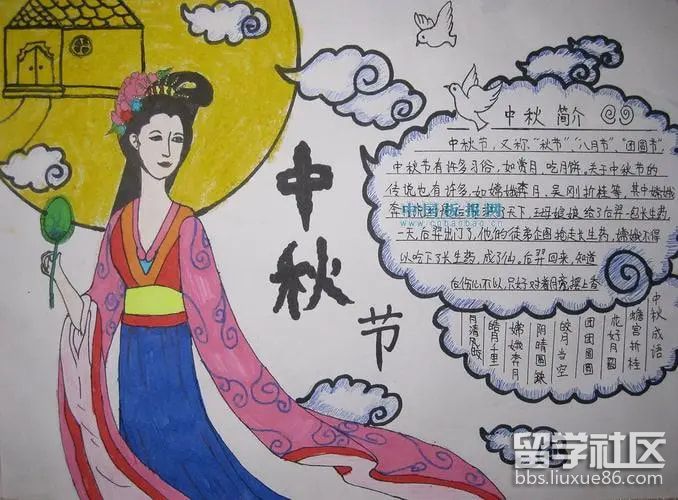 中秋节
中秋简介
中秋节，又称“秋节”、“八月节”、“团圆节”。
中秋节有许多习俗，如赏月、吃月饼。关于中秋节的
传说也有许多，如嫦娥奔月，吴刚折桂等，其中嫦娥
奔月 后羿 天下，王母娘娘给了后羿一包长生药，
一天后羿出门了，他的徒弟企图抢走长生药，嫦娥不得
以吃下了长生药，成了仙，后羿回来，知道
后伤心不以，只好对着月亮摆上香
中秋成语
蟾宫折桂
花好月圆
团团圆圆
皓月当空
阴晴圆缺
嫦娥奔月
皓月千里
月清风
中国板报网
留学社区
bbs.liuxue86.com